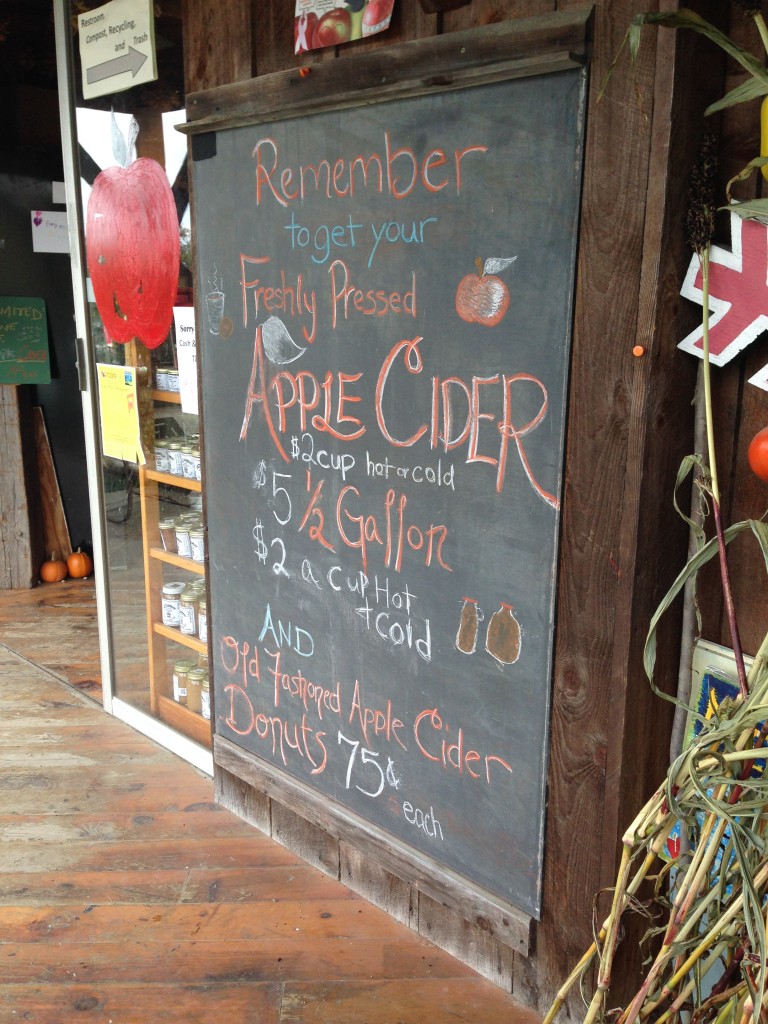 Restroom
Compost, Recycling,
and Trash
Remember
to get your
Freshly Pressed
Apple Cider
$2 cup hot or cold
$5 ½ Gallon
$2 a cup Hot
+ Cold
AND
Old Fashioned Apple Cider
Donuts 75¢
each
Sorry
Cash &